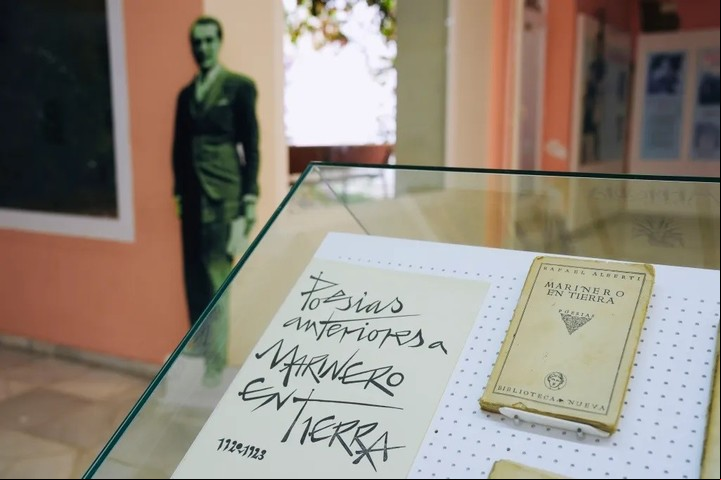 Poesías
anteriores a
MARINERO
EN TIERRA
1920-1923
RAFAEL ALBERTI
MARINERO
EN TIERRA
POESÍAS
BIBLIOTECA NUEVA